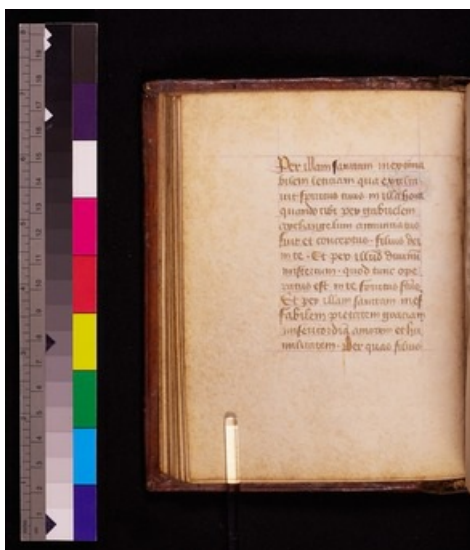 Per illam sanctam inextima
bilem leticiam qua exulta
uit spiritus tuus in illa hora
quando tibi per gabrielem
archangelum annunciatus
fuit et conceptus filius dei
in te. Et per illud diuinū
misterium quod tunc ope
ratus est in te spiritus sāts
Et per illam sanctam inef
fabilem pietatem graciam
misericordiā amorem et hu
militatem. Per quas filius